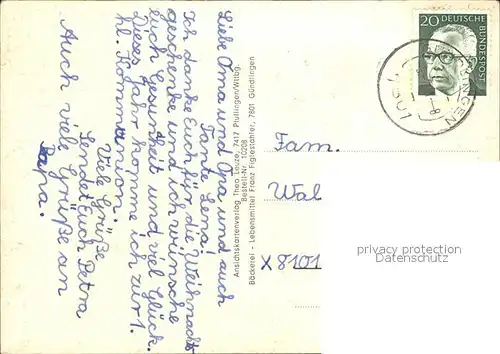 Liebe Oma und Opa und auch
Tante Lena!
Ich danke Euch für die Weihnachts
geschenke und ich wünsche
Euch Gesundheit und viel Glück.
Dieses Jahr komme ich zur 1.
hl. Kommunion.
Viele Grüße
sendet Euch Petra
Auch viele Grüße an
Papa.
Ansichtskartenverlag Theo Leuze, 7417 Pfullingen/Wttbg.
Bestell-Nr. 10208
Bäckerei - Lebensmittel Franz Figlestahler, 7801 Gündlingen
20 DEUTSCHE
BUNDESPOST
Fam.
Wal
X 8101
privacy protection
Datenschutz